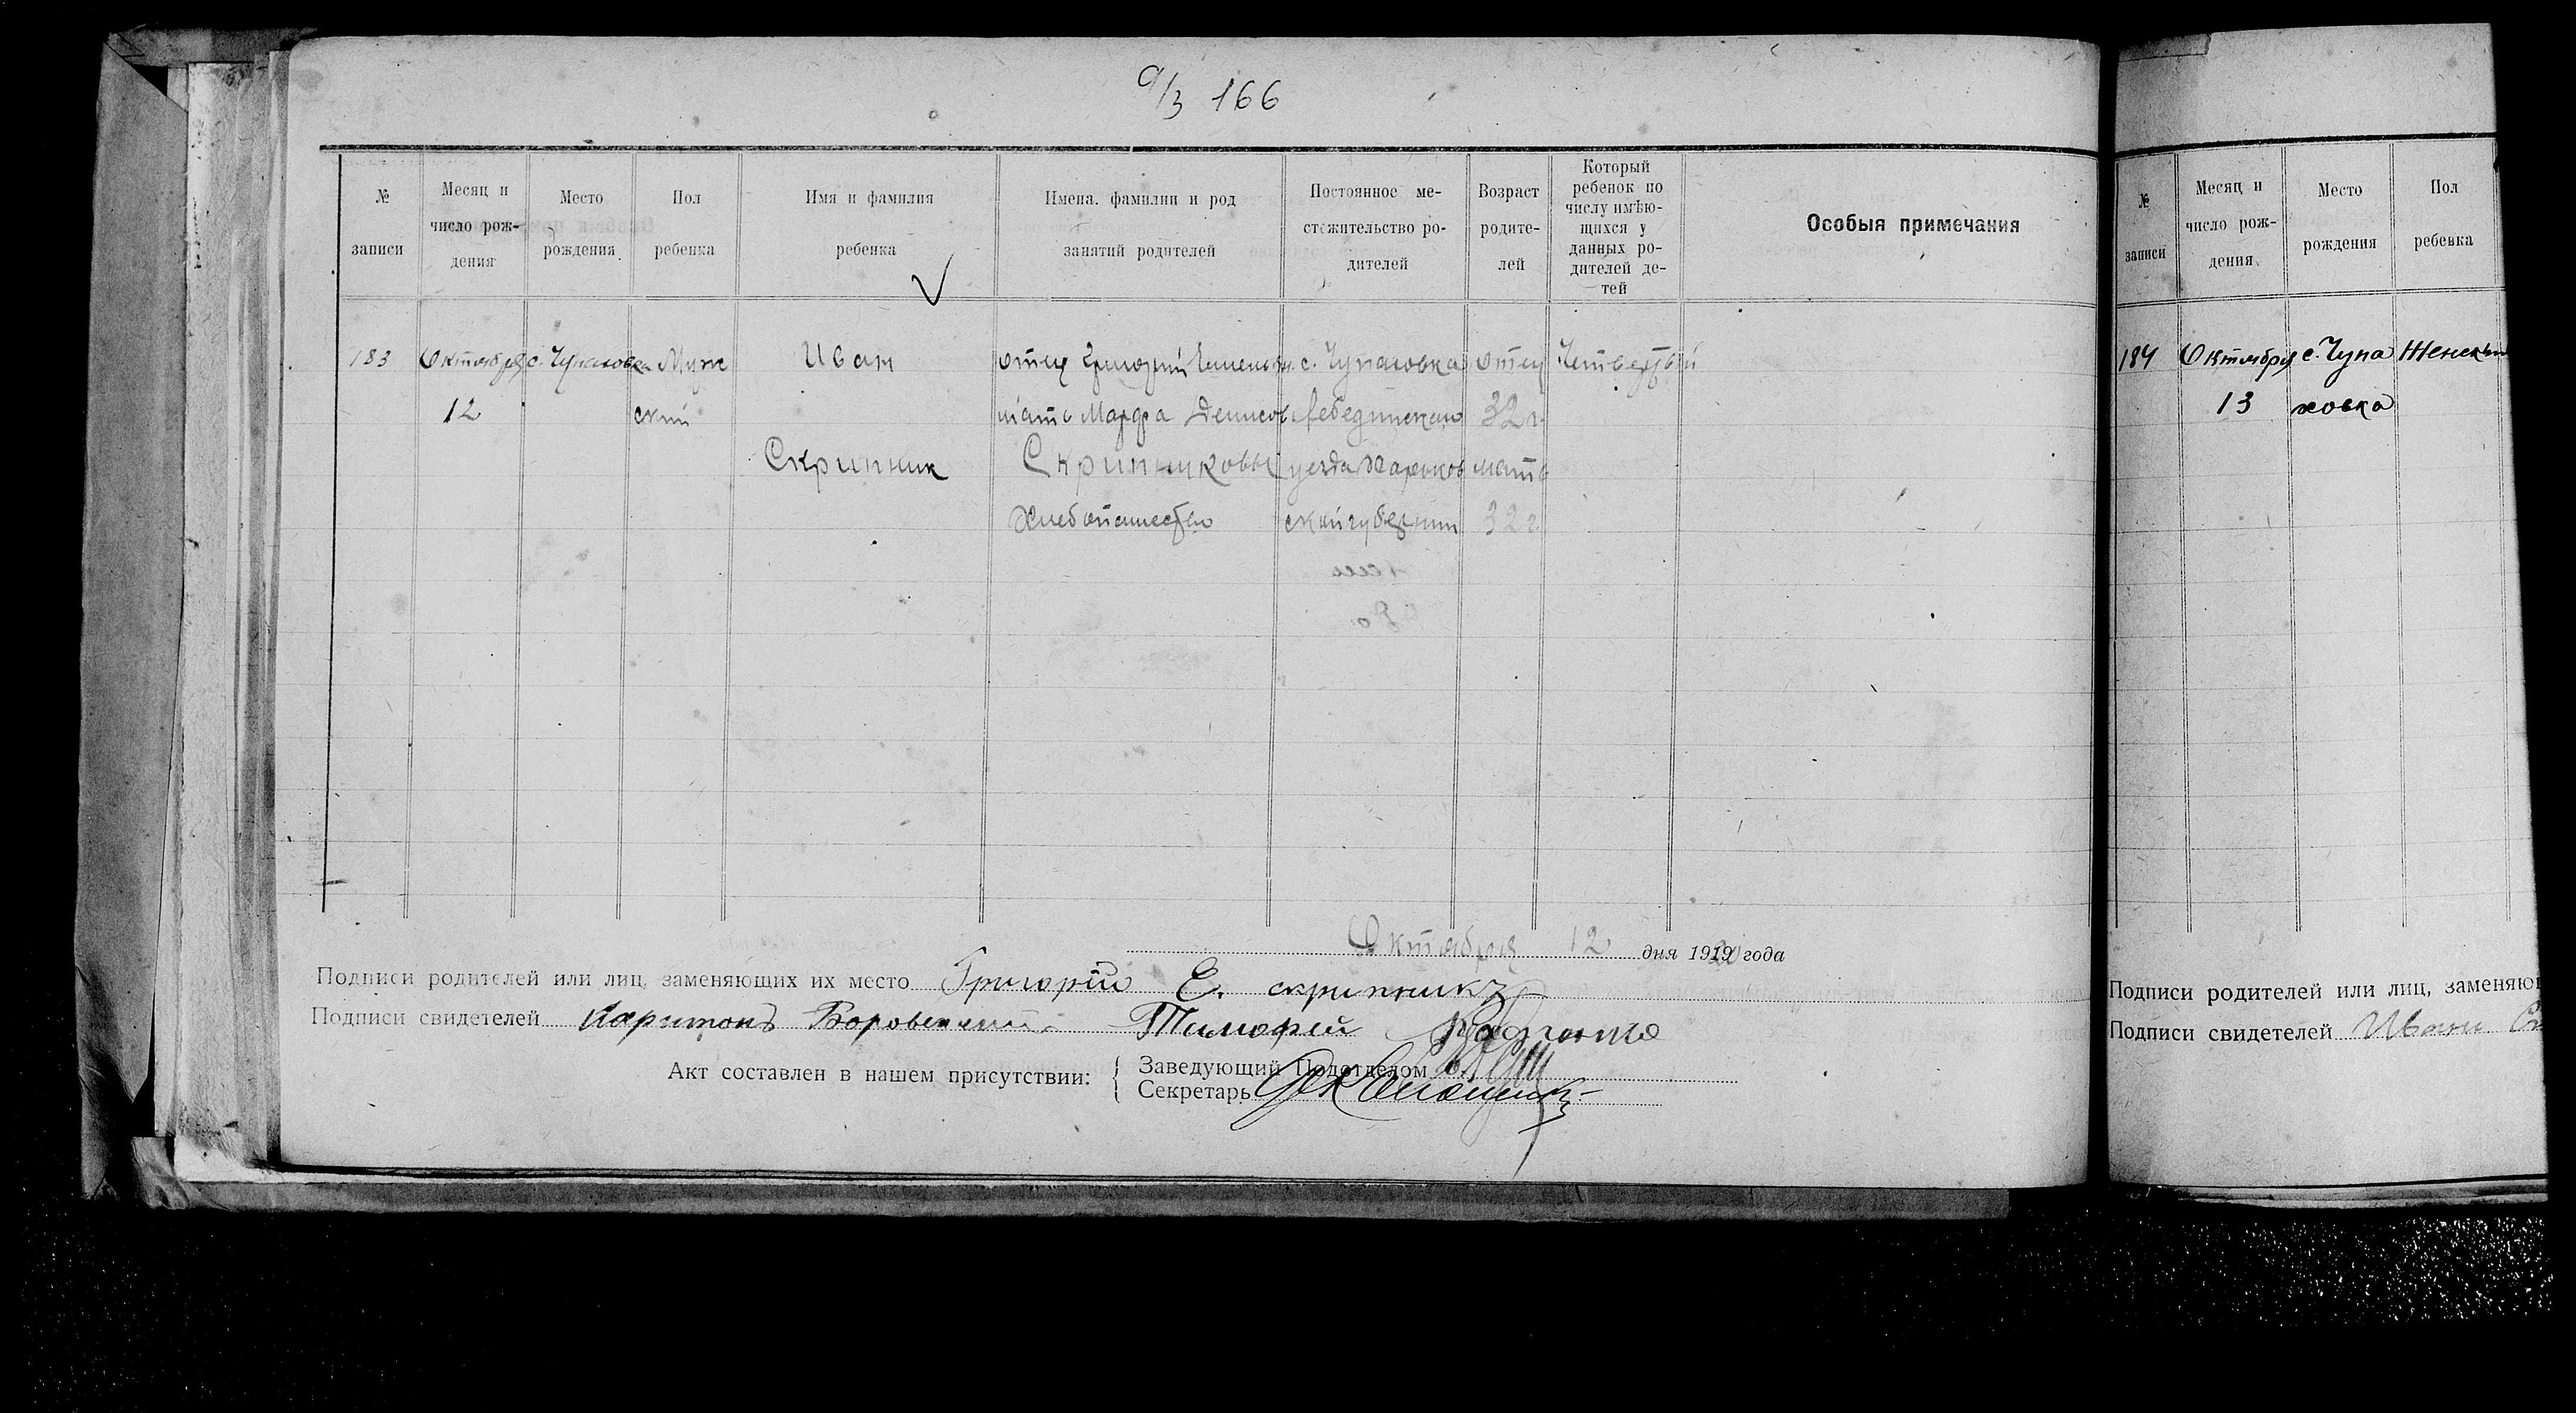 а/з 166
№ записи
Месяц и число рож- дения
Место рождения
Пол ребенка
Имя и фамилия ребенка
Имена, фамилии и род занятий родителей
Постоянное ме- стожительство ро- дителей
Возраст родите- лей
Который ребенок по числу имѣю- щихся у данных ро- дителей де- тей
Особыя примечания
183 Октября с. Чупаховка Муж Иван отец Григорий с. Чупаховка отец Четвертый
12 ский мать Марфа Денисов Лебединскаго 32 г.
Скрипник Скрипниковы уезда Харьков мать
Хлебопашество ской губернии 32 г.
Октября 12 дня 1920 года
Подписи родителей или лиц, заменяющих их место Григорій Е. скрипникъ
Подписи свидетелей Каритонъ Боровенский Тимофей
Акт составлен в нашем присутствии:
Заведующий Подотделом
Секретарь
№ записи
Месяц и число рож- дения
Место рождения
Пол ребенка
184 Октября с. Чупа Женский
13 ховка
Подписи родителей или лиц, заменяю
Подписи свидетелей Иван